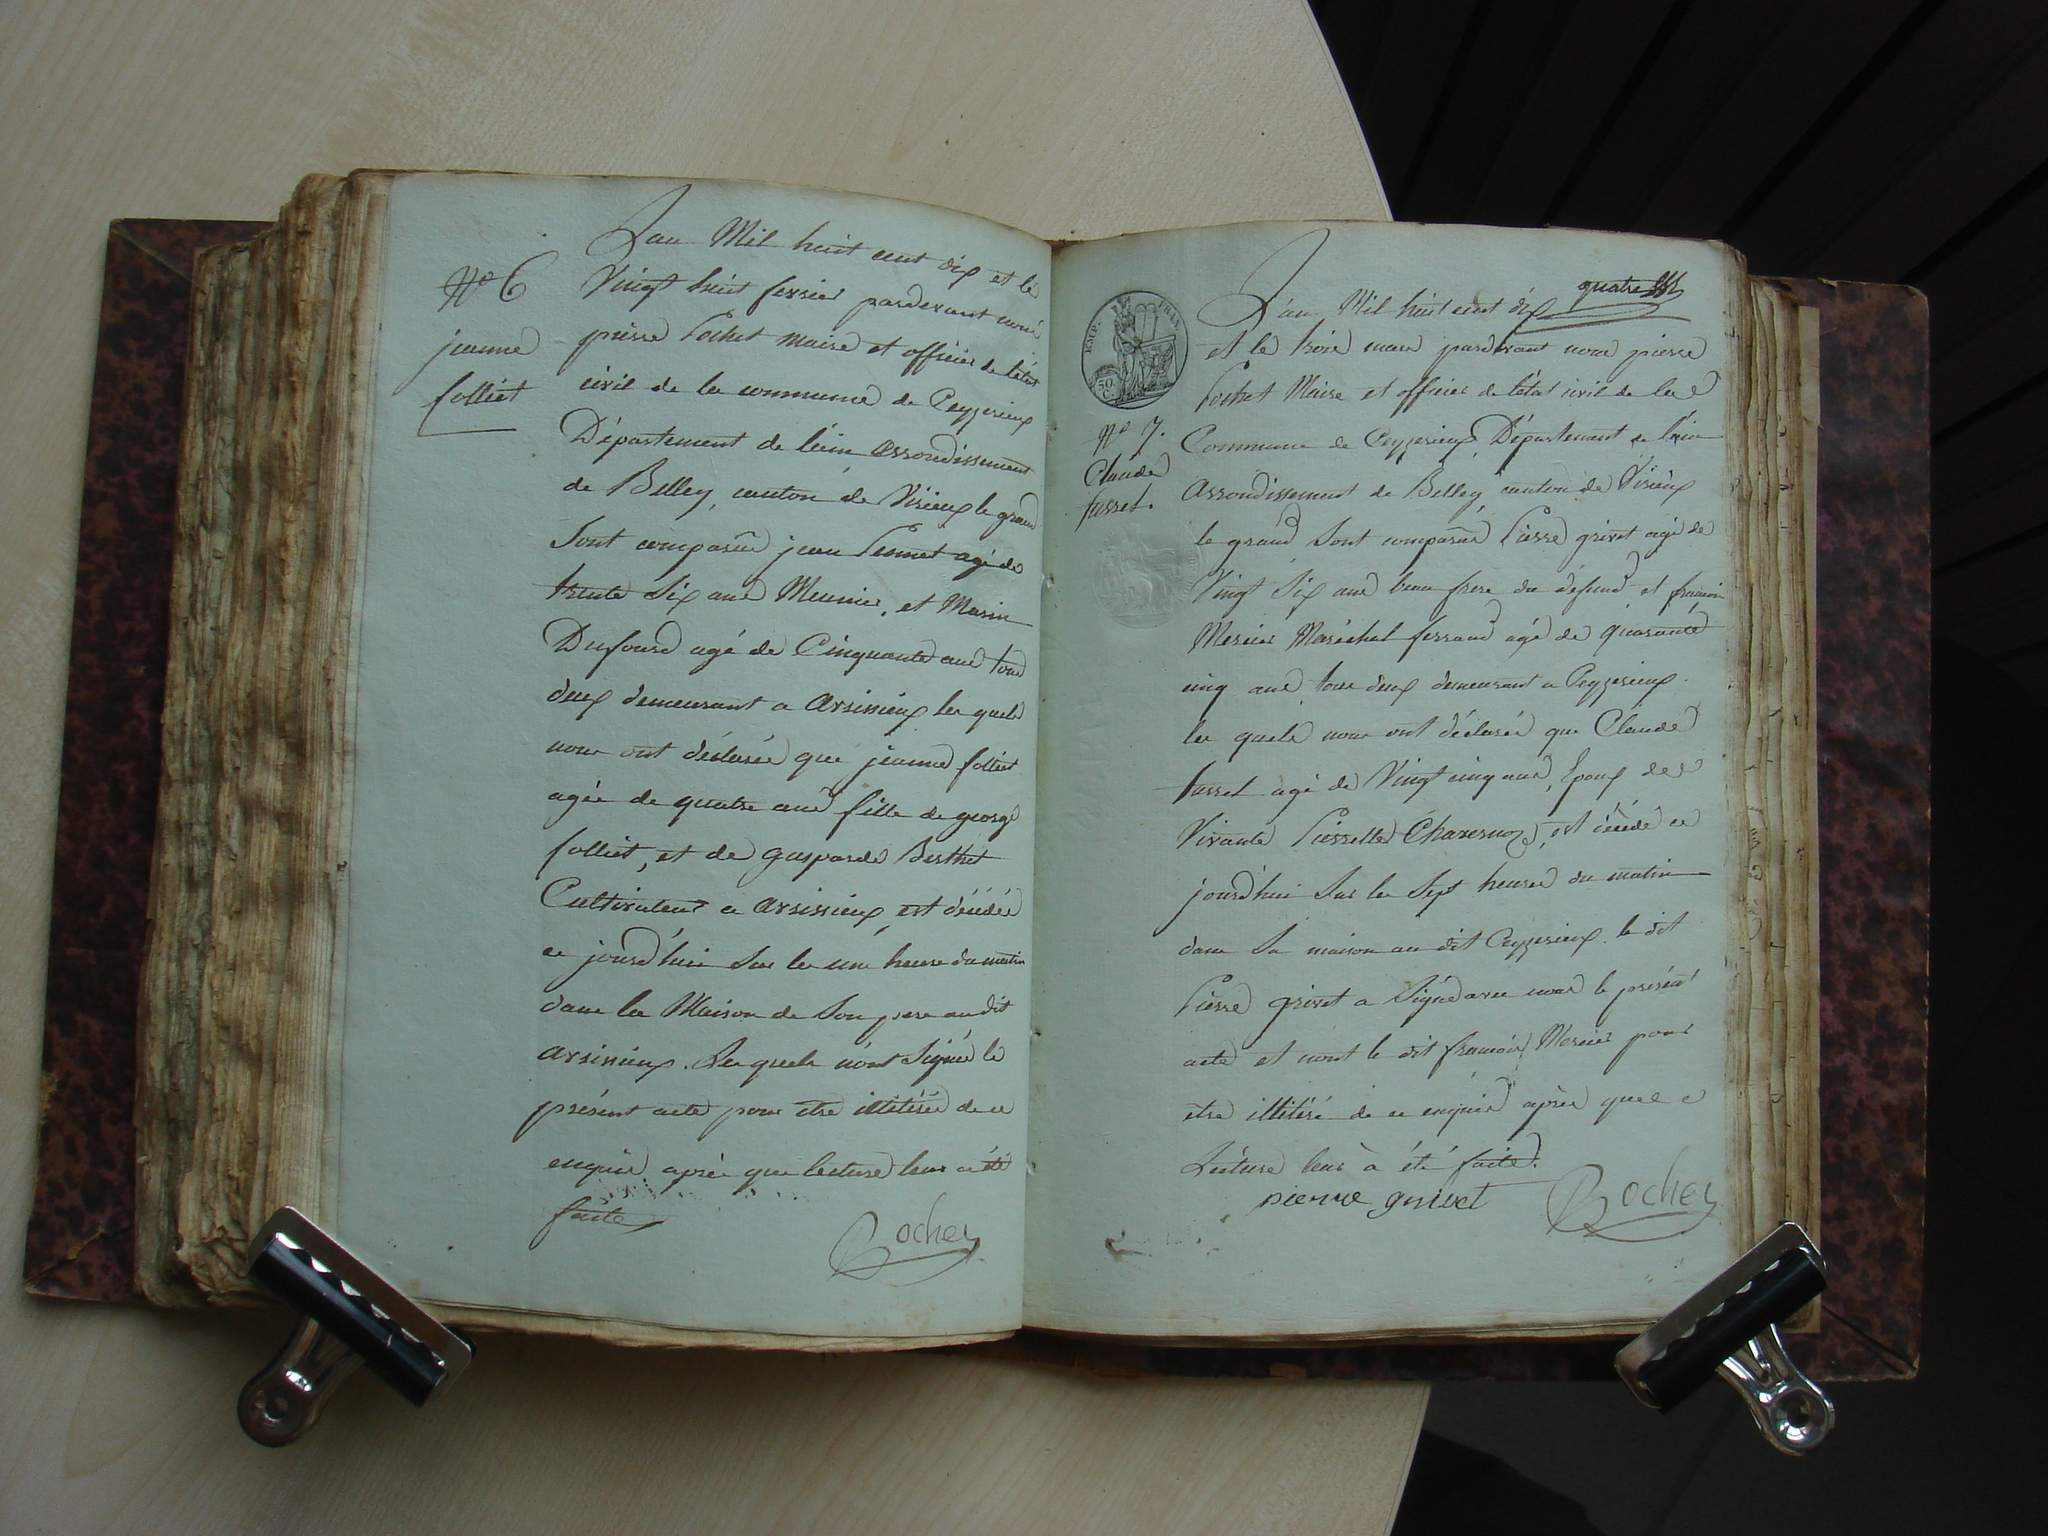 N° 6
jeanne
folliet
Lan Mil huit cent dix et le
Vingt huit fevrier pardevant nous
pierre Rochet Maire et officier de létat
civil de la commune de Ceyzerieux
Département de léin, arrondissement
de Belley, canton de Virieux le grand
Sont comparûs jean agé de
trente Six ans Meunier, et Marin
Dufourd agé de Cinquante ans tous
deux demeurant a arsissieux les quels
nous ont déclarée que jeanne folliet
agée de quatre ans fille de george
folliet, et de gasparde Berthet
Cultivateur a arsissieux, est décédée
ce jourd'hui Sur les une heure du matin
dans la Maison de Son pere au dit
arsissieux. Les quels n'ont Signés le
présent acte pour etre illitéré de ce
enquis après que lecture leur a été
faite
Rochet
quatre
EMP. FRAN.
50
C.
N° 7.
Claude
fusset.
L'an Mil huit cent dix
et le trois mars pardevant nous pierre
Rochet Maire et officier de létat civil de la
Commune de Ceyzerieux, Département de l'ain
arrondissement de Belley, canton de Virieux
le grand Sont comparus Pierre grivet agé de
Vingt Six ans beau frere du défund, et francois
Mercier Maréchal ferrand agé de quarante
cinq ans tous deux demeurant a Ceyzerieux.
les quels nous ont déclarés que Claude
fusset agé de Vingt cinq ans, Epoux de
Vivante Pierrette est décédé ce
jourd'hui Sur les Sept heures du matin
dans Sa maison au dit Ceyzerieux. le dit
Pierre grivet a Signé avec nous le présent
acte et nont le dit francois Mercier pour
etre illitéré de ce enquis après que
Lecture leur à été faite.
pierre grivet
Rochet